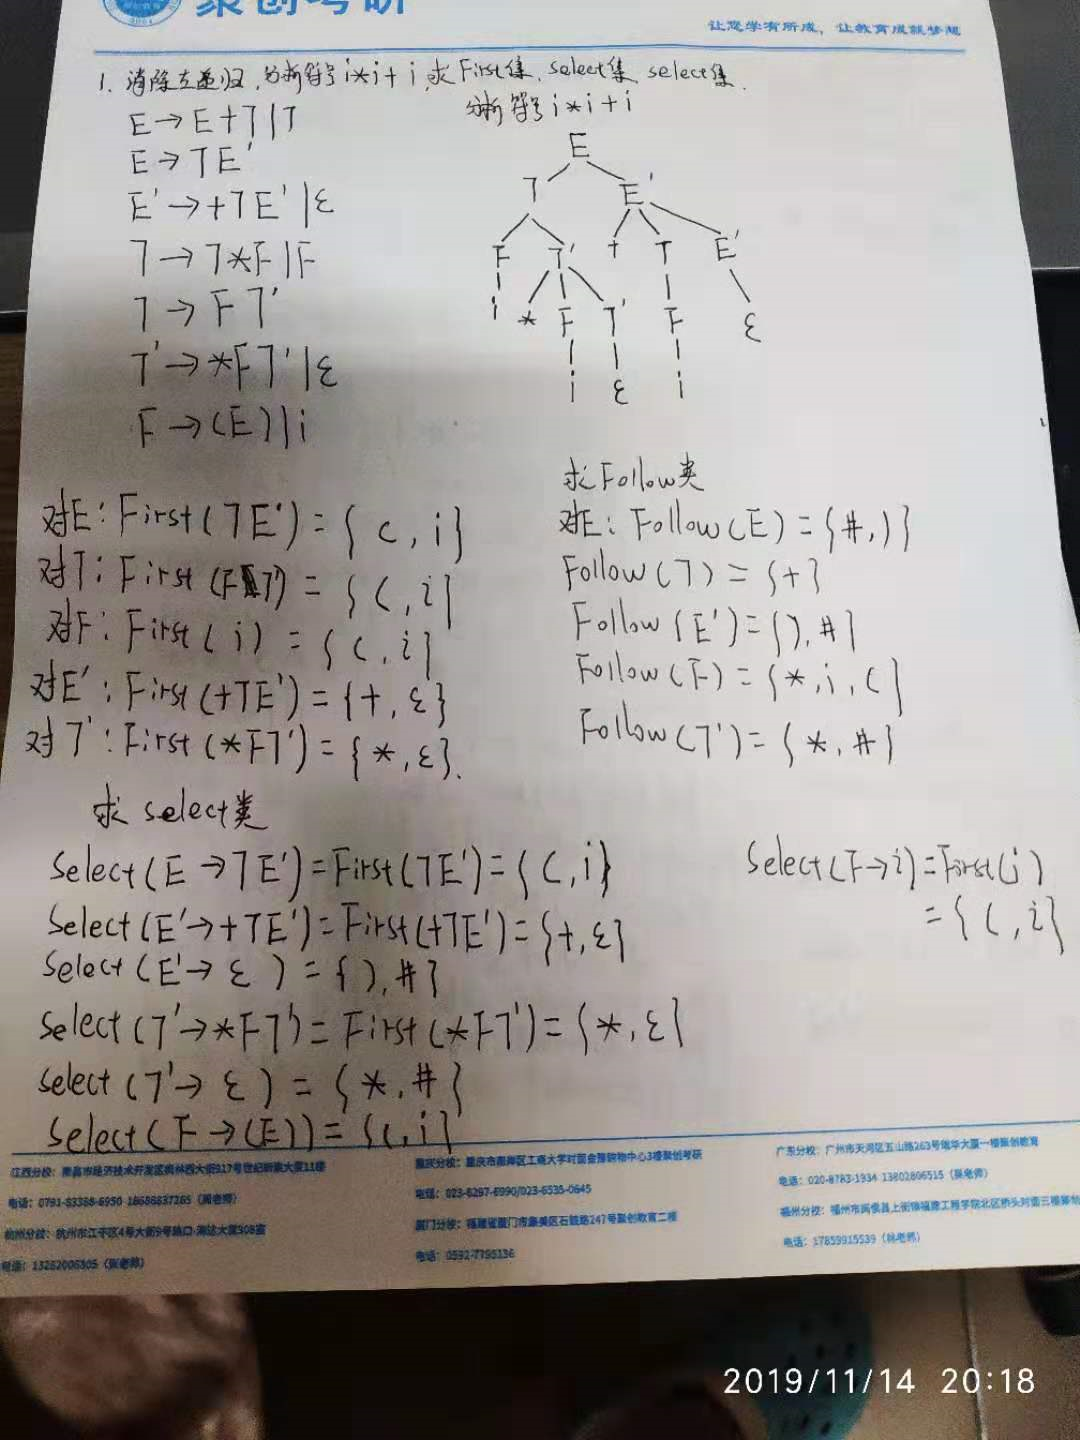 聚创考研
让您学有所成，让教育成就梦想
1. 消除左递归，分析符号i*i+i，求First集、select集 select集.
分析符号i*i+i
E→E+T|T
E→TE'
E'→+TE'|ε
T→T*F|F
T→FT'
T'→*FT'|ε
F→(E)|i
E
T E'
F T' + T E'
i * F T' F ε
i ε i
对E: First(TE')={(,i}
对T: First(FT')={(,i}
对F: First(i)={(,i}
对E': First(+TE')={+,ε}
对T': First(*FT')={*,ε}.
求Follow类
对E: Follow(E)={#,)}
Follow(T)={+}
Follow(E')={),#}
Follow(F)={*,i,(}
Follow(T')={*,#}
求select类
Select(E→TE')=First(TE')={(,i}
Select(E'→+TE')=First(+TE')={+,ε}
Select(E'→ε)={),#}
Select(T'→*FT')=First(*FT')={*,ε}
Select(T'→ε)={*,#}
Select(F→(E))={(,i}
Select(F→i)=First(i)
={(,i}
江西分校：南昌市经济技术开发区枫林西大街917号世纪新宸大厦11楼
电话：0791-83388-6950 （周老师）
杭州分校：杭州市江干区4号大街9号路口 308室
电话：13282006305（张老师）
重庆分校：重庆市南岸区工商大学对面金辉购物中心3楼聚创考研
电话：023-6297-6990/023-6535-0645
厦门分校：福建省厦门市集美区石鼓路247号聚创教育二楼
电话：0592-7795136
广东分校：广州市天河区五山路263号 华大厦一楼聚创教育
电话：020-8783-1934 13802806515（吴老师）
福州分校：福州市闽侯县上街镇福建工程学院北区桥头对面三楼聚创
电话：17859915539（林老师）
2019/11/14 20:18